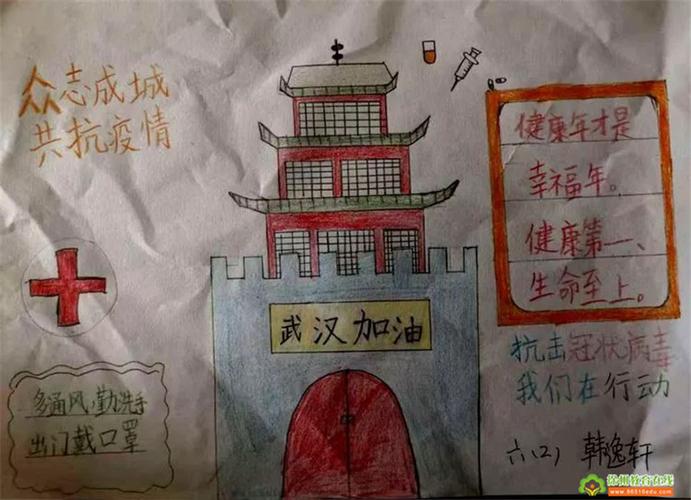 众志成城
共抗疫情
健康年才是
幸福年。
健康第一、
生命至上。
武汉加油
抗击冠状病毒
我们在行动
多通风,勤洗手
出门戴口罩
六(2) 韩逸轩
徐州教育在线
www.86516edu.com